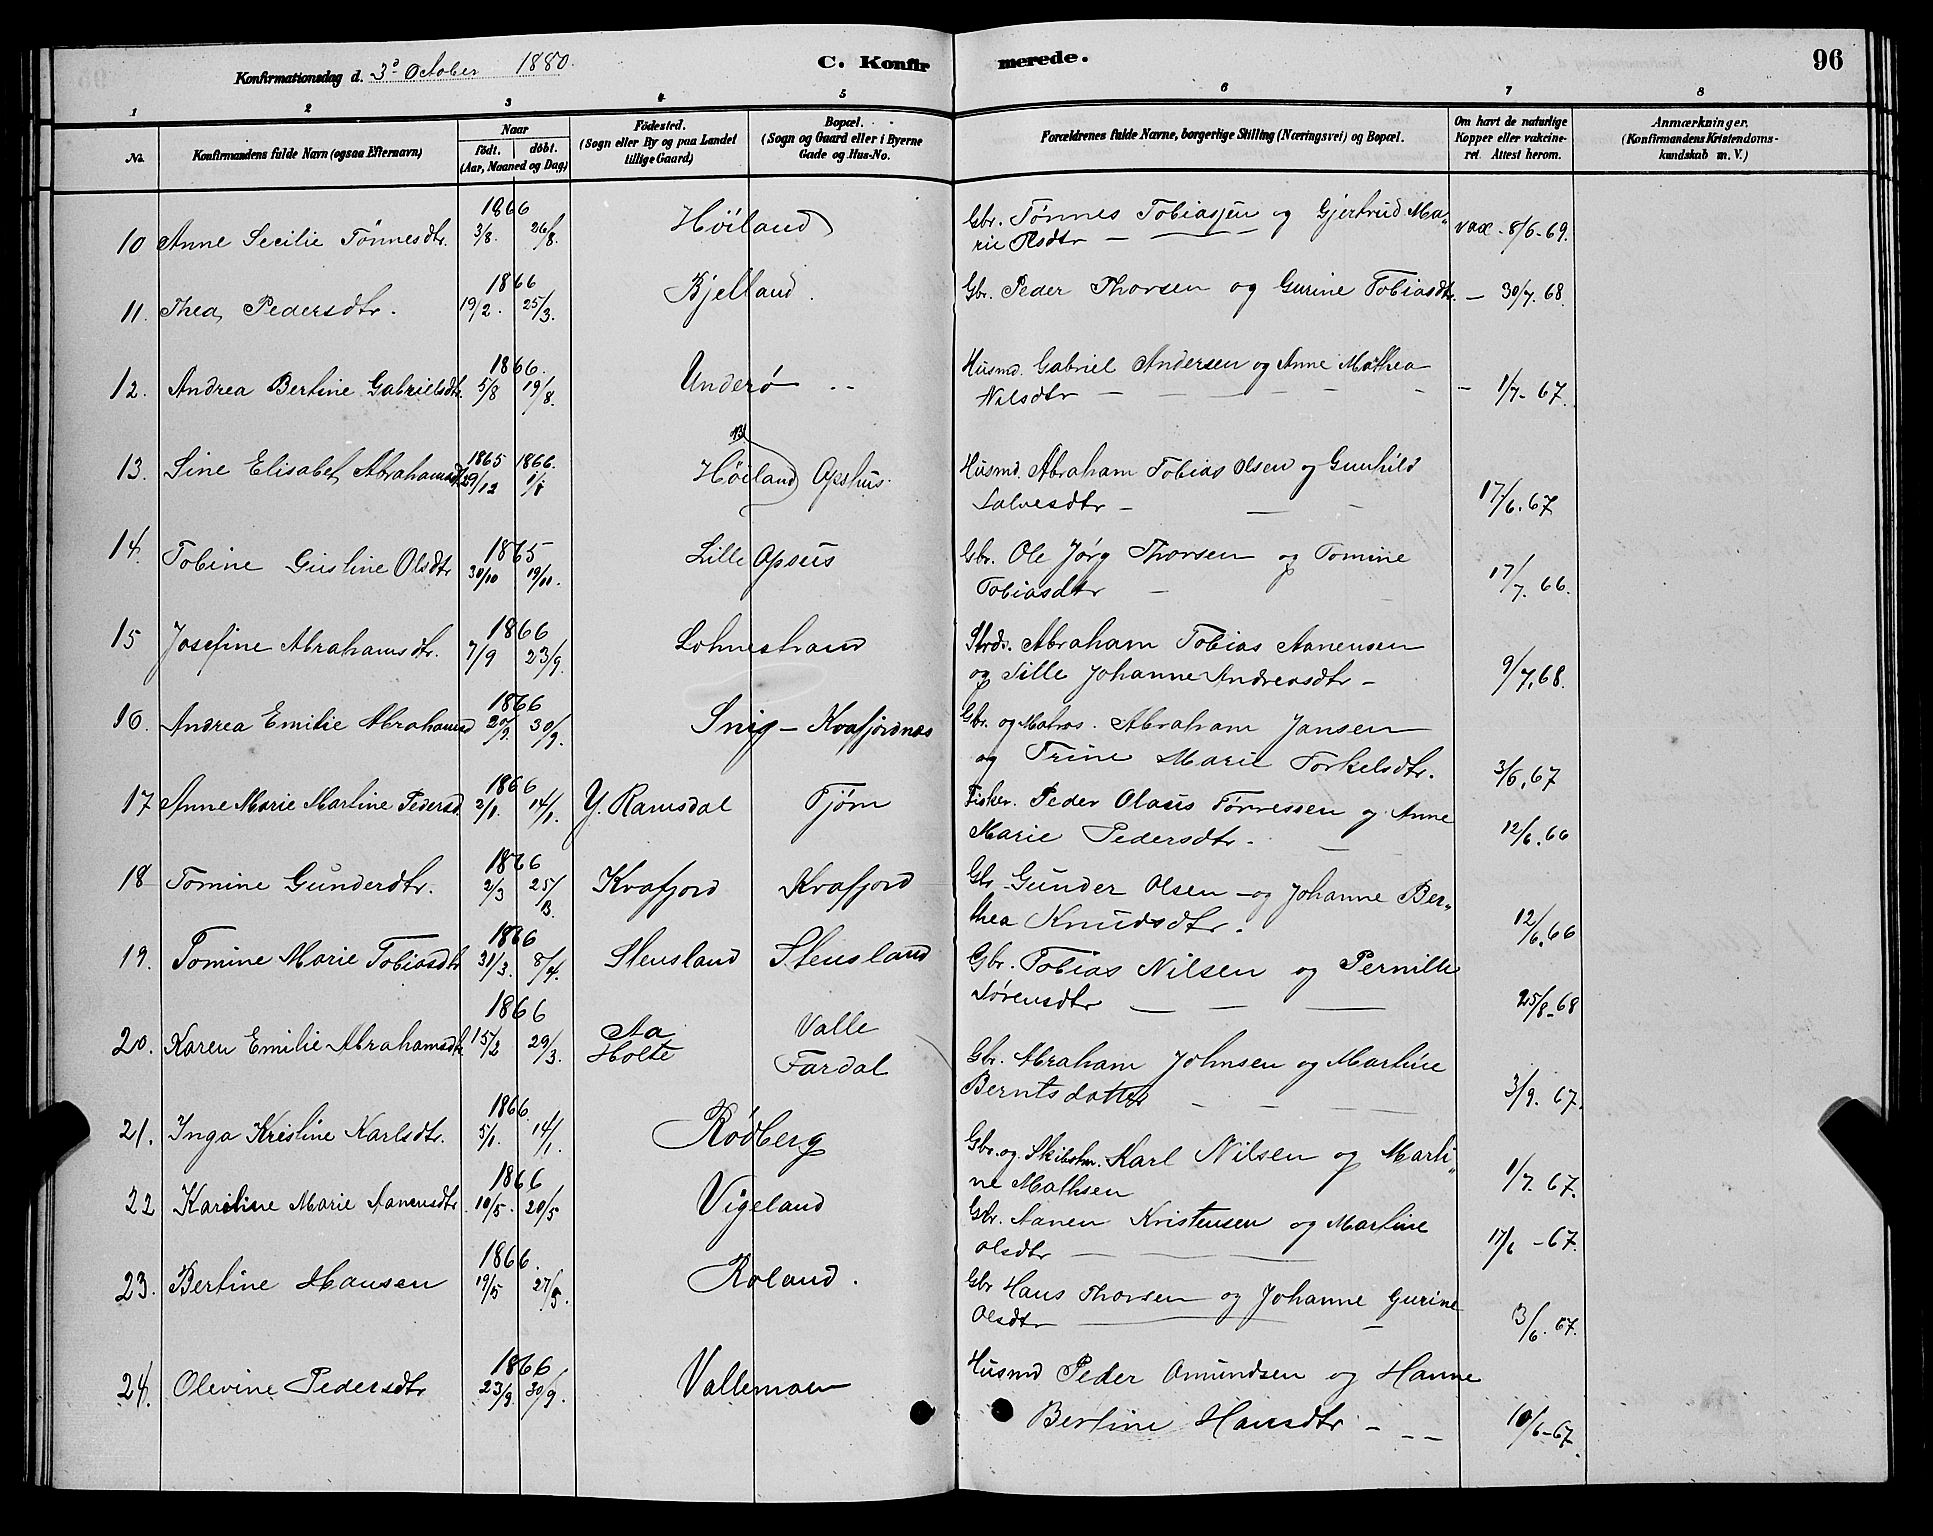 Konfirmationsdag d. 3º October 1880.
C. Konfirmerede.
96
1 2 3 4 5 6 7 8
No.
Konfirmandens fulde Navn (ogsaa Efternavn)
Naar
födt. döbt.
(Aar, Maaned og Dag)
Födested.
(Sogn eller By og paa Landet
tillige Gaard)
Bopæl.
(Sogn og Gaard eller i Byerne
Gade og Hus-No.
Forældrenes fulde Navne, borgerlige Stilling (Næringsvei) og Bopæl.
Om havt de naturlige
Kopper eller vakcine-
ret. Attest herom.
Anmærkninger.
(Konfirmandens Kristendoms-
kundskab m. V.)
1866
10 Anne Secilie Tönnesdtr. 3/8. 26/8. Höiland Gbr. Tønnes Tobiassen og Gjertrud Ma-
rie Olsdtr — vax - 8/6-69.
1866
11. Thea Pedersdtr. 19/2. 25/3. Bjelland. Gbr. Peder Thorsen og Gurine Tobiasdtr. — 30/7. 68.
1866.
12. Andrea Bertine Gabrielsdtr. 5/8 19/8. Underø Husmd. Gabriel Andersen og Anne Mathea
Nilsdtr — 1/7-67.
1865 1866.
13. Sine Elisabet Abrahamsdtr 29/12 1/1 Höiland Opshus. Husmd. Abraham Tobias Olsen og Gunhild
Salvesdtr — 17/6.67
1865
14. Tobine Gustine Olsdtr 30/10 19/11. Lille Opsus Gbr. Ole Jørg Thorsen og Tomine
Tobiasdtr — 17/7. 66.
1866
15 Josefine Abrahamsdtr. 7/9 23/9. Lohnestrand Strds. Abraham Tobias Aanensen
og Sille Johanne Andreasdtr — 9/7,68.
1866
16. Andrea Emilie Abrahamsd 20/9. 30/9. Snig — Kvafjordnæs Gbr. og Matros. Abraham Jansen
og Trine Marie Torkelsdtr. 3/6,67
1866
17 Anne Marie Martine Pedersd. 2/1. 14/1. Y. Ramsdal Tjöm Fisker. Peder Olaus Tönnessen og Anne
Marie Pedersdtr. — 12/6.66
1866
18 Tomine Gunderdtr. 2/3 25/3. Kvafjord Kvafjord Gbr. Gunder Olsen — og Johanne Ber-
thea Knudsdtr. 12/6.66
1866
19. Tomine Marie Tobiasdtr 31/3. 8/4. Stensland Stensland Gbr. Tobias Nilsen og Pernille
Sörensdtr — 25/8-68
1866
20. Karen Emilie Abrahamsdtr 15/2 29/3. Aa Valle
Holte Fardal
Gbr. Abraham Johnsen og Martine
Berntsdatter — 3/9. 67.
1866.
21. Inga Kristine Karlsdtr. 5/1. 14/1. Rödberg Gbr. og. Skibstm. Karl Nilsen og Marti-
ne Mathsen 1/7. 67.
1866
22 Karoline Marie Aanensdtr 10/5. 20/5 Vigeland Gbr. Aanen Kristensen og Martine
Olsdtr — 17/6 - 67.
1866.
23. Bertine Hansen 19/5 27/5. Roland. Gbr Hans Thorsen og Johanne Gurine
Olsdtr — 13/6. 67.
1866
24. Olevine Pedersdtr 23/9 30/9. Vallemoen Husmd Peder Omundsen og Hanne
Bertine Hansdtr — 10/6-67